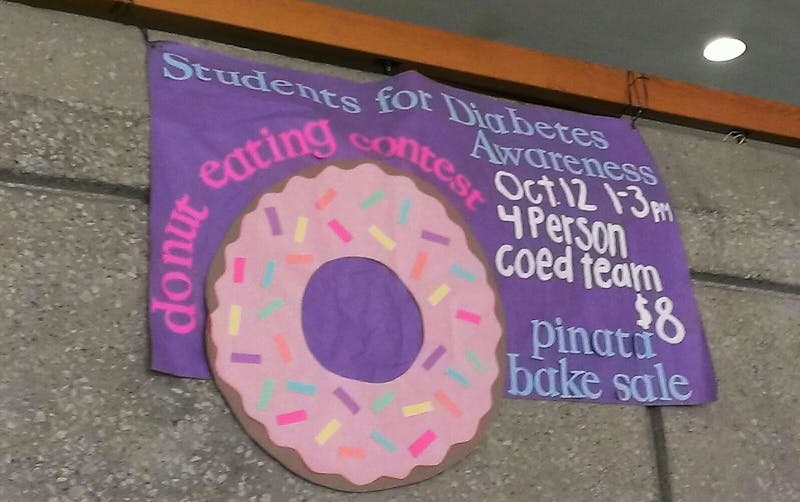 Students for Diabetes
Awareness
donut eating contest
Oct. 12 1-3 pm
4 Person
coed team
$8
pinata
bake sale